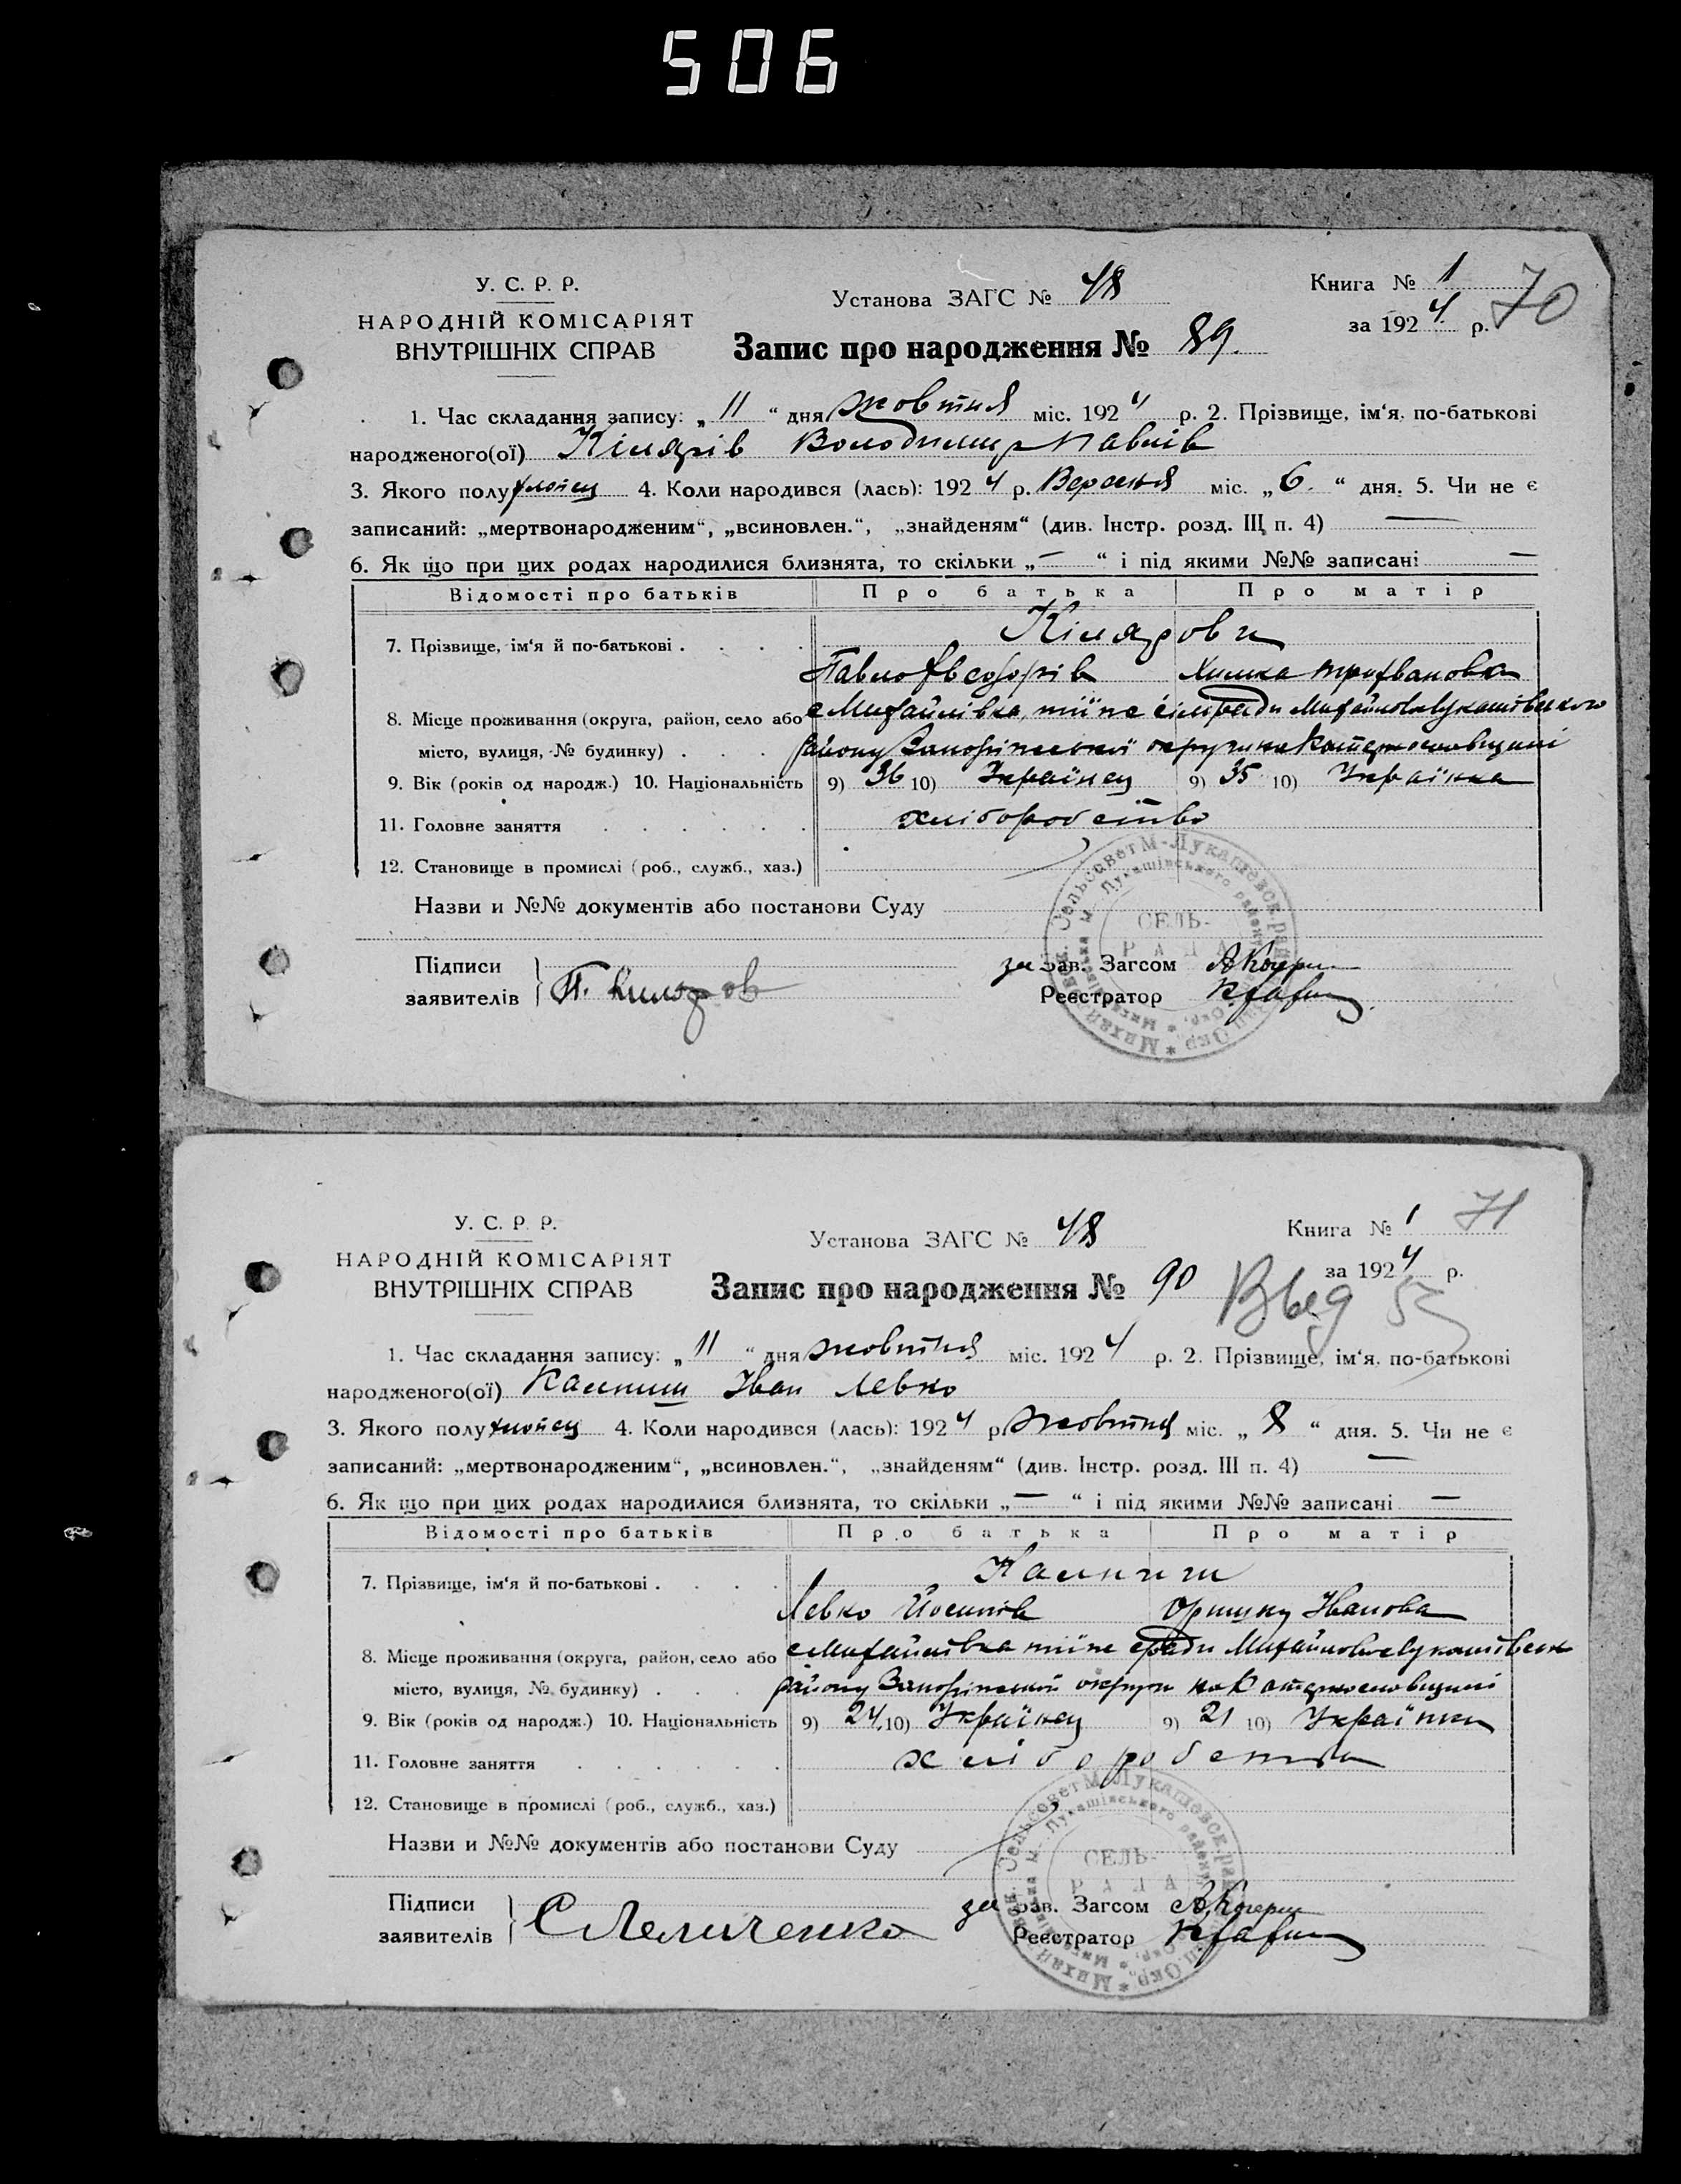 506
У. С. Р. Р.
НАРОДНІЙ КОМІСАРІЯТ
ВНУТРІШНІХ СПРАВ
Установа ЗАГС № 48
Запис про народження № 89.
Книга № 1
за 1924 р.
70
1. Час складання запису: „11“ дня жовтня міс. 1924 р. 2. Прізвище, ім‘я, по-батькові
народженого(ої) Кілярів Володимир Павлів
3. Якого полу хлопец 4. Коли народився (лась): 1924 р. Вересня міс. „6.“ дня. 5. Чи не є
записаний: „мертвонародженим“, „всиновлен.“, „знайденям“ (див. Інстр. розд. III п. 4) —
6. Як що при цих родах народилися близнята, то скільки „—“ і під якими №№ записані —
Відомості про батьків Про батька Про матір
7. Прізвище, ім‘я й по-батькові . . . .
Павло
8. Місце проживання (округа, район, село або с Михайлівка
місто, вулиця, № будинку) . . . району Запоріжської округи на Катеринославщині
9. Вік (років од народж.) 10. Національність 9) 36 10) Українец 9) 35 10) Українка
11. Головне заняття . . . . . . хліборобство
12. Становище в промислі (роб., служб., хаз.)
Назви и №№ документів або постанови Суду
Підписи
заявителів
за Зав. Загсом
Реєстратор
СЕЛЬ-
РАДА
У. С. Р. Р.
НАРОДНІЙ КОМІСАРІЯТ
ВНУТРІШНІХ СПРАВ
Установа ЗАГС № 48
Запис про народження № 90
Книга № 1
за 1924 р.
71
1. Час складання запису: „11“ дня жовтня міс. 1924 р. 2. Прізвище, ім‘я, по-батькові
народженого(ої) Калниш Іван Левко
3. Якого полу хлопец 4. Коли народився (лась): 1924 р. жовтня міс. „8“ дня. 5. Чи не є
записаний: „мертвонародженим“, „всиновлен.“, „знайденям“ (див. Інстр. розд. III п. 4) —
6. Як що при цих родах народилися близнята, то скільки „—“ і під якими №№ записані —
Відомості про батьків Про батька Про матір
Калниш
7. Прізвище, ім‘я й по-батькові . . . .
Левко Йосипів Іванова
8. Місце проживання (округа, район, село або с Михайлівка
місто, вулиця, № будинку) . . . району Запоріжської округи на Катеринославщині
9. Вік (років од народж.) 10. Національність 9) 24 10) Українец 9) 21 10) Українка
11. Головне заняття . . . . . . хлібороб
12. Становище в промислі (роб., служб., хаз.)
Назви и №№ документів або постанови Суду
Підписи
заявителів
за Зав. Загсом
Реєстратор
СЕЛЬ-
РАДА